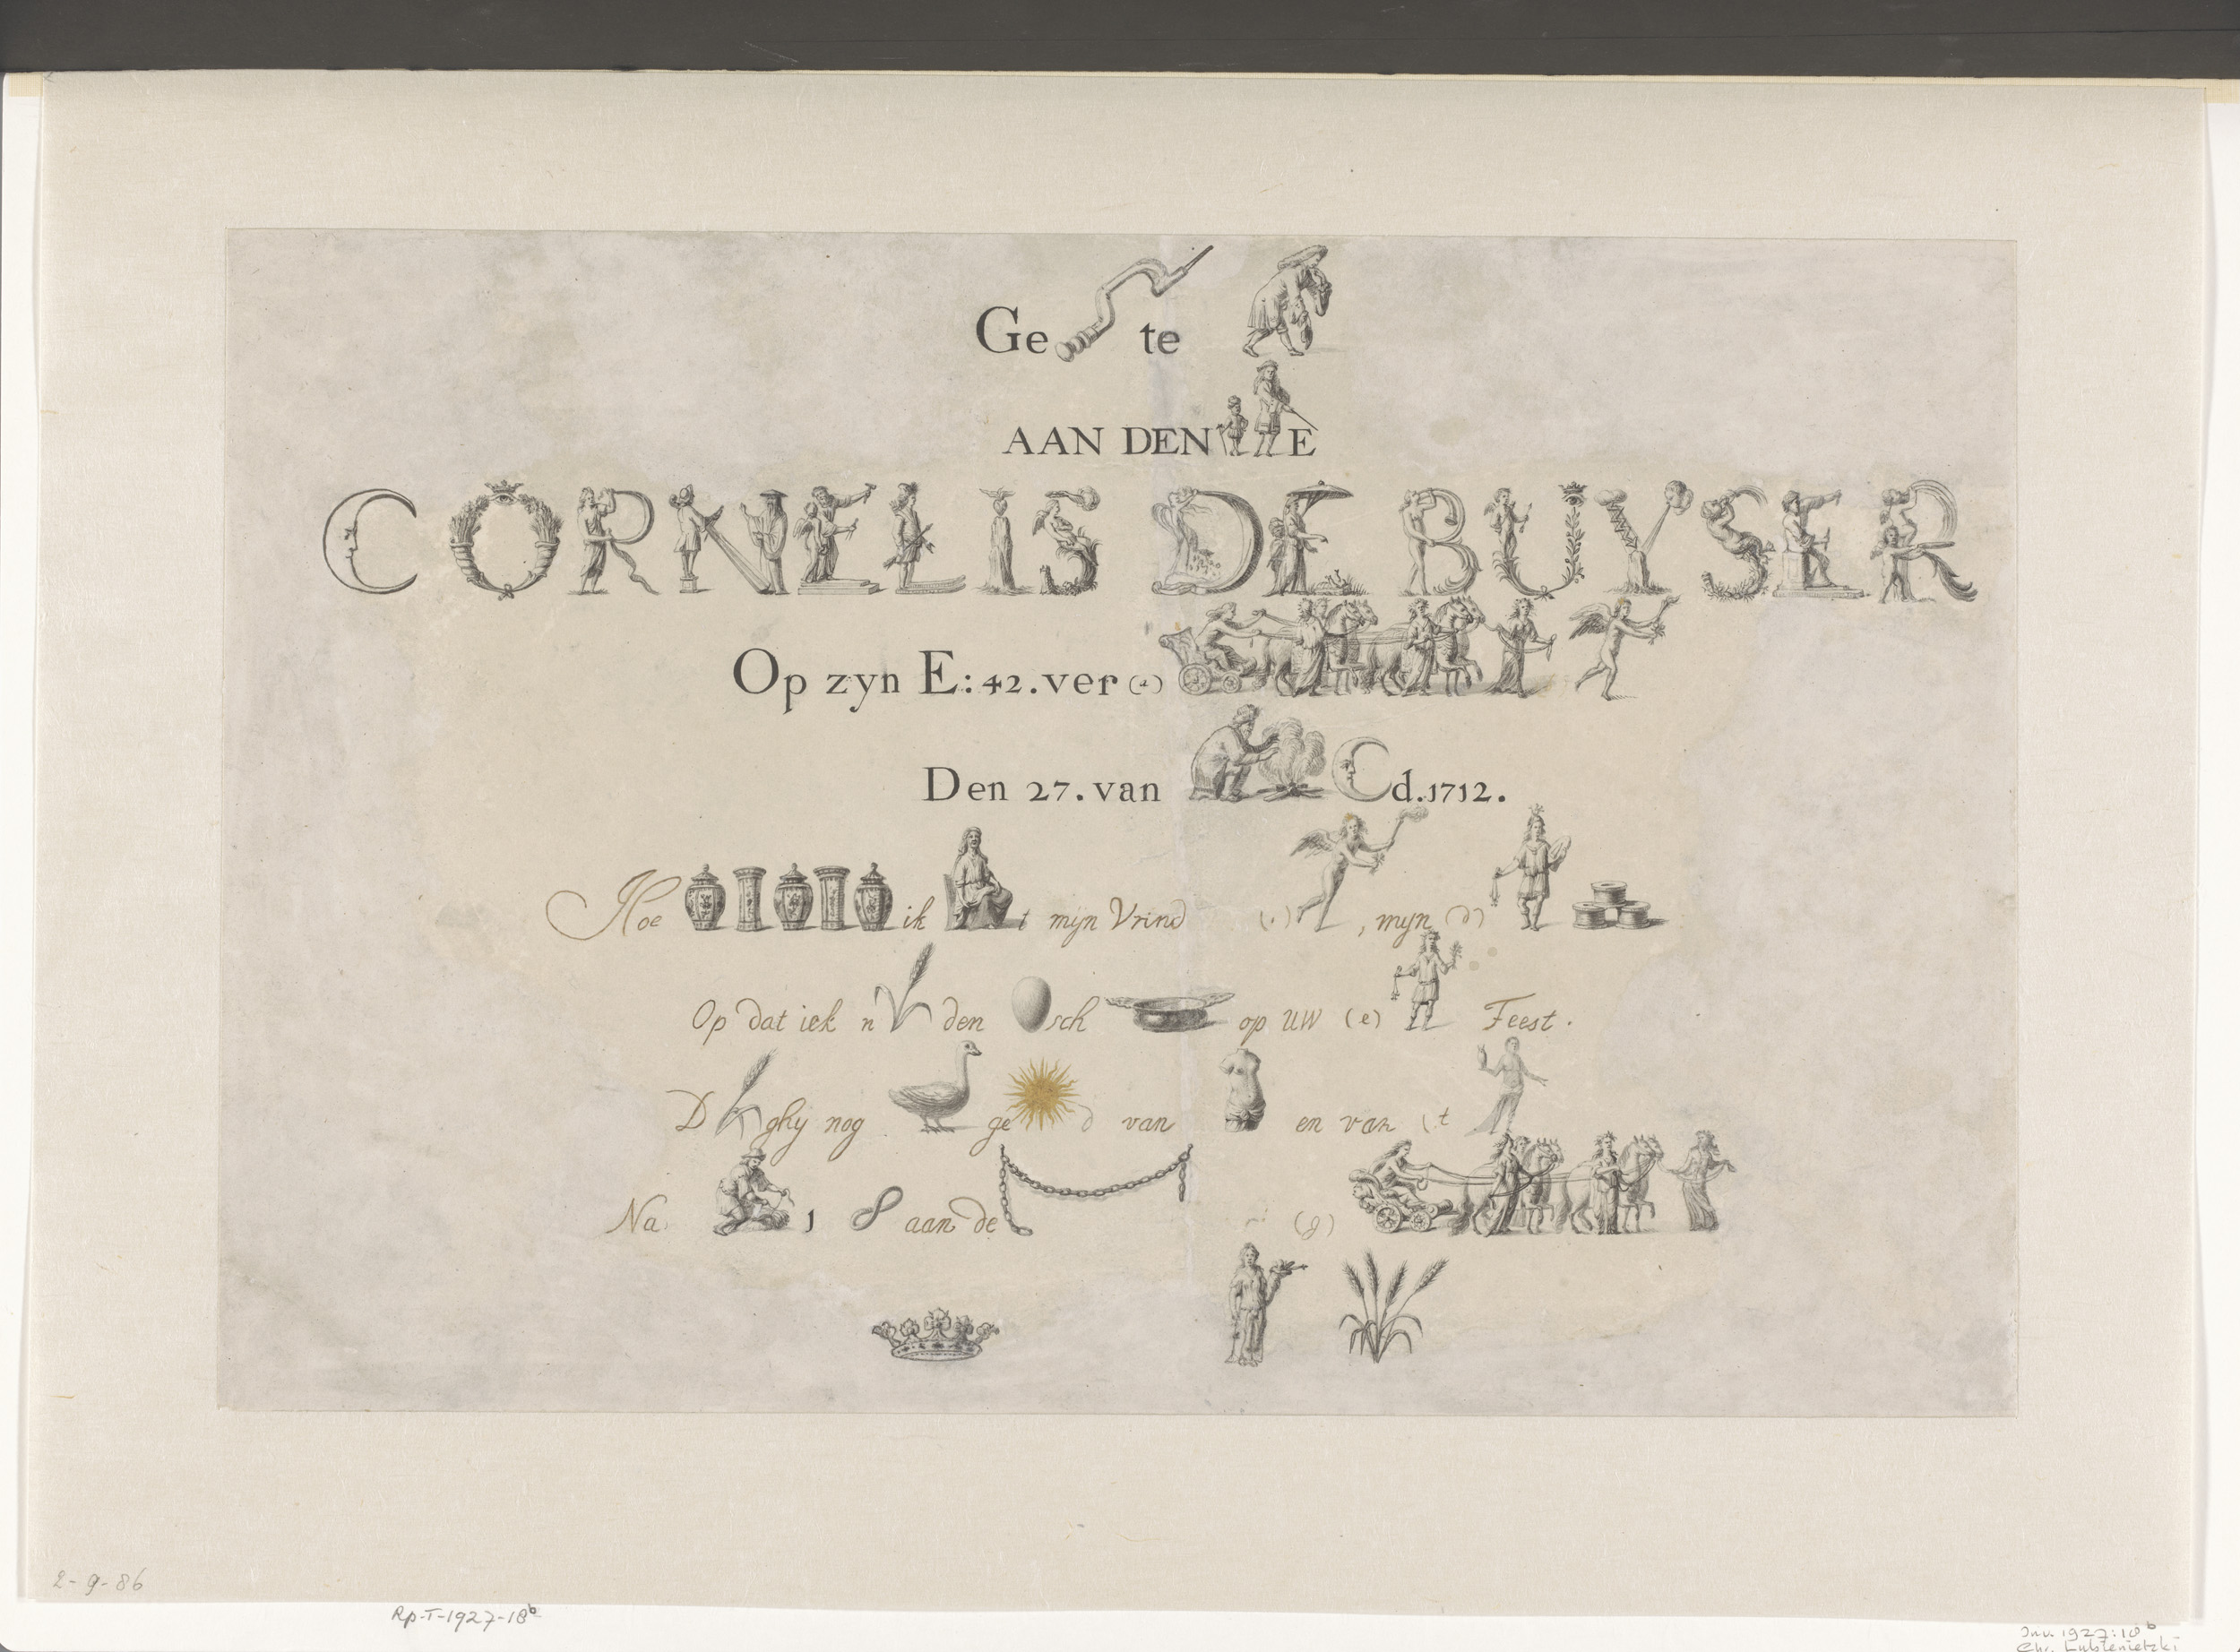 Ge te
AAN DEN E
CORNELIS DE BUYSER
Op zyn E: 42. ver
Den 27. van d. 1712.
Hoe ik t mijn Vrind , mijn (d)
Op dat ick n den sch op UW (e) Feest.
D ghy nog ge d van en van t
Na 8 aan de (g)
2-9-86
Rp-T-1927-18b
Inv. 1927:18b
Chr. Lubienietzki